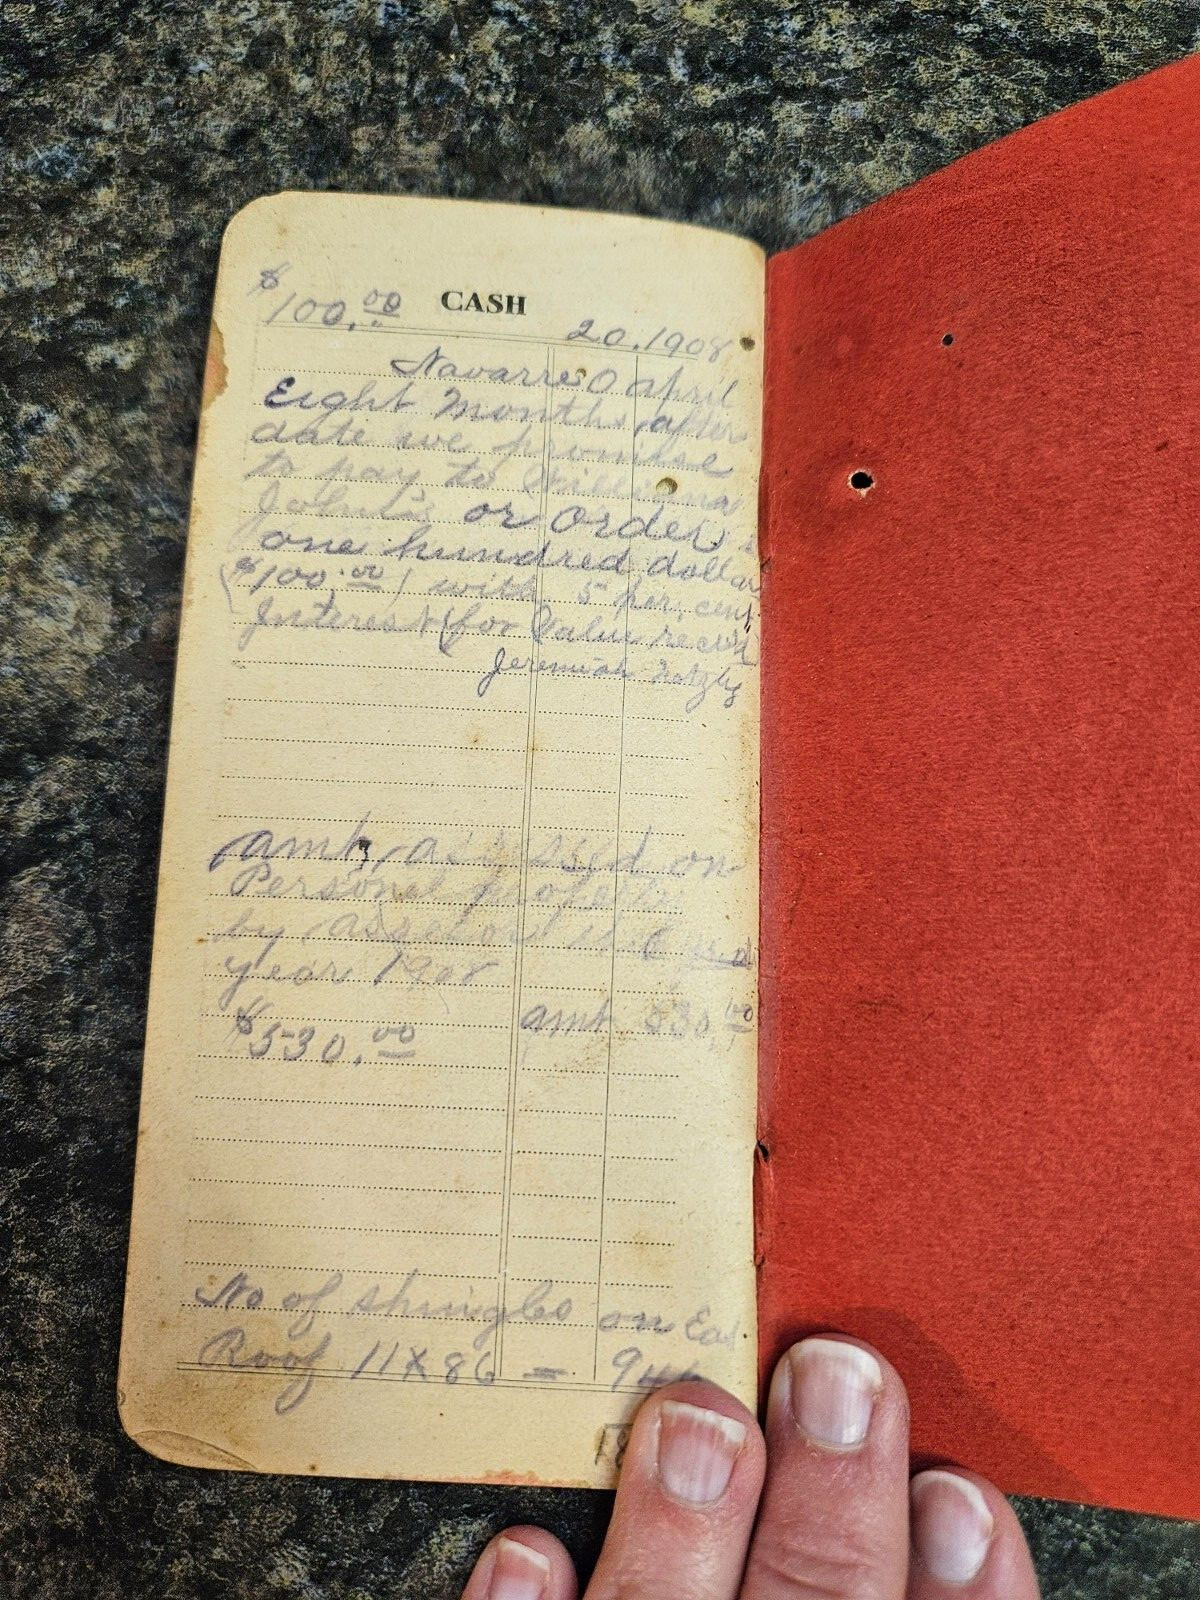 $100.00 CASH
20. 1908
Navarre O april
Eight Months after
date we promise
to pay to William
John's or Order
one hundred dollar
($100.00) with 5 per, cent
Interest for Value rec'd
Jeremiah
amt, assessed on
Personel property
by assessor
year 1908
amt 530.00
$530.00
No of shingles on Eas
Roof 11 x 86 = 946